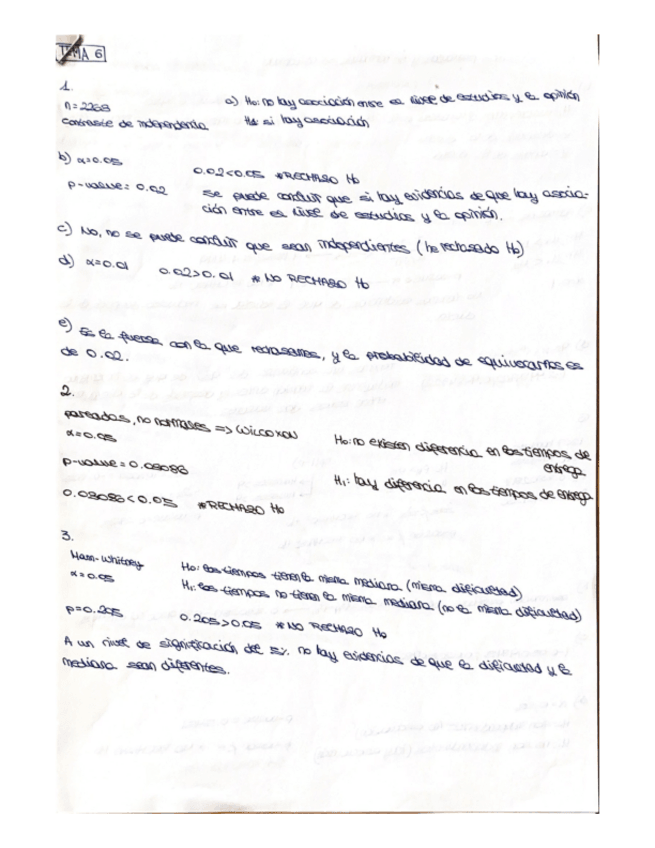 TEMA 6
1.
n=2268
Contraste de independencia
a) H0: no hay asociación entre el nivel de estudios y la opinión
H1: si hay asociación
b) α=0.05
p-value= 0.02
0.02<0.05 *RECHAZO H0
Se puede concluir que si hay evidencias de que hay asocia-
ción entre el nivel de estudios y la opinión.
c) No, no se puede concluir que sean independientes (he rechazado H0)
d) α=0.01 0.02>0.01 * NO RECHAZO H0
e) Es la fuerza con la que rechazamos, y la probabilidad de equivocarnos es
de 0.02.
2.
pareadas, no normales => WILCOXON
α=0.05
p-value=
H0: no existen diferencia en los tiempos de
entrega
H1: hay diferencia en los tiempos de entrega
<0.05 *RECHAZO H0
3.
Mann-Whitney
α=0.05
H0: los tiempos tienen la misma mediana (misma dificultad)
H1: los tiempos no tienen la misma mediana (no la misma dificultad)
p=0.205
0.205>0.05 *NO RECHAZO H0
A un nivel de significación del 5% no hay evidencias de que la dificultad y la
mediana sean diferentes.